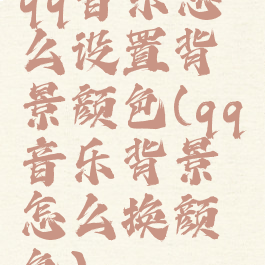 qq音乐怎
么设置背
景颜色(qq
音乐背景
怎么换颜
色)